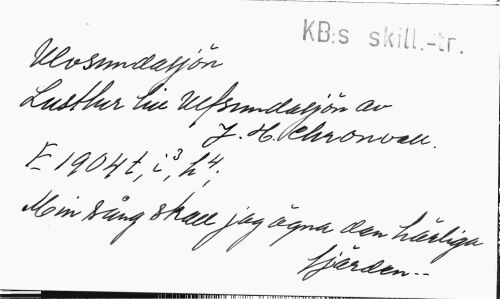 KB:s skill.-tr.
Ulvsundasjön
Lusthur till Ulfsundasjön av
J. H. Chronwall.
E 1904 t, i³, h⁴;
Min sång skall jag ägna den härliga
fjärden--